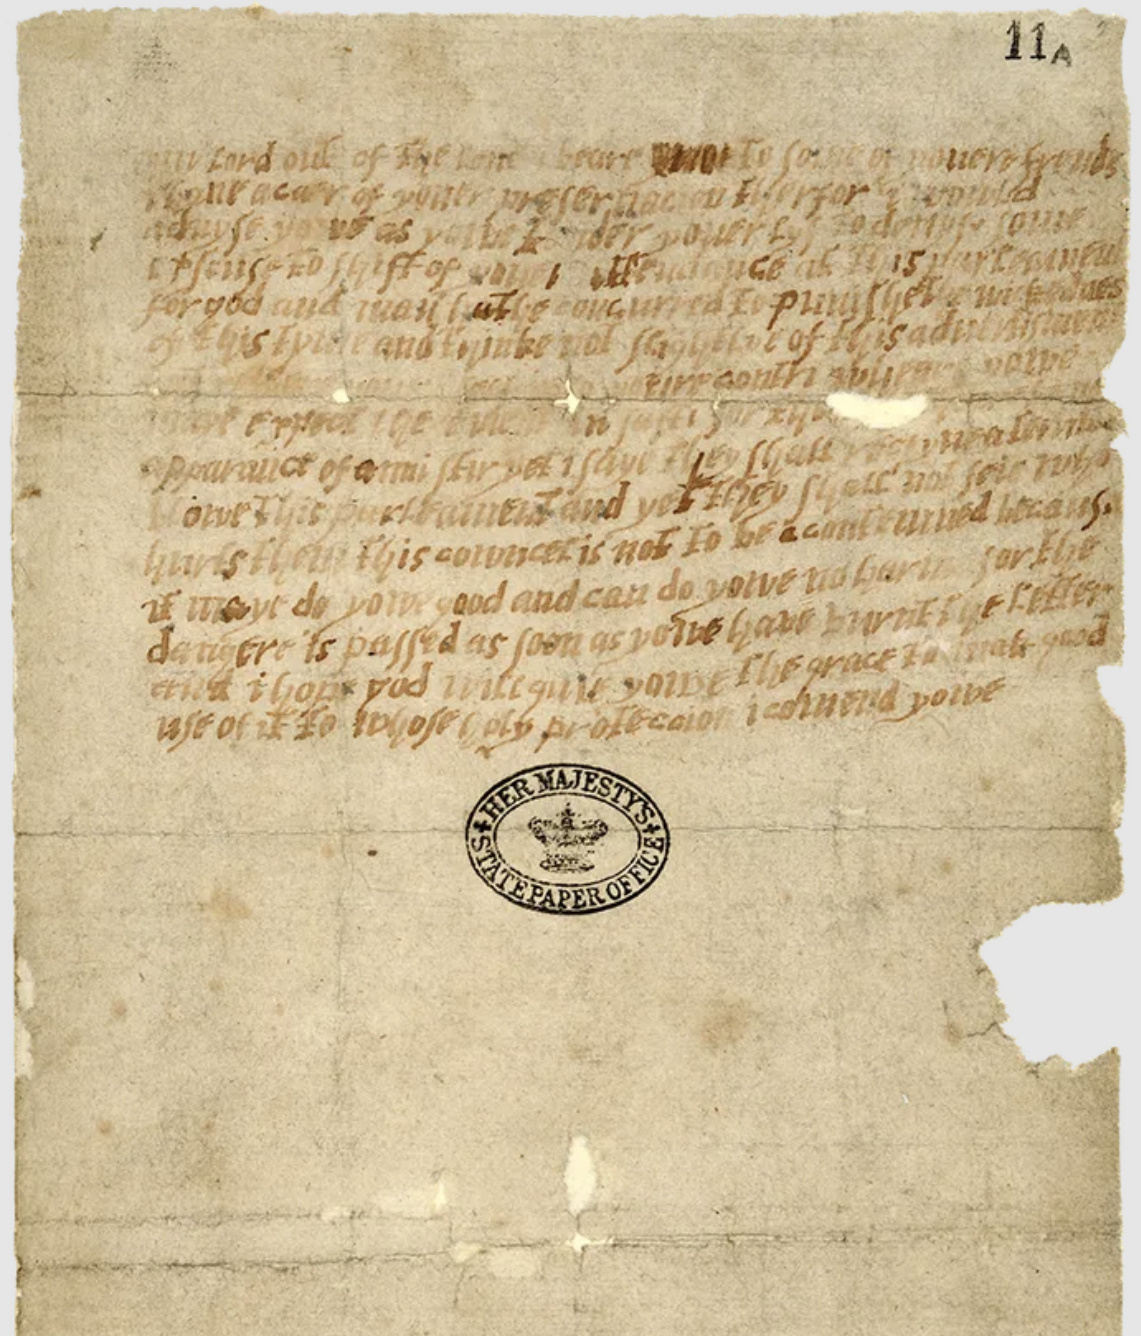 11A
lord out of the beare to some of youere frends
a caer of youer preseruacion therfor i would
aduyse yowe as yowe tender youer lyf to deuyse some
to shift of youer attendance at this parleament
for god and man hathe concurred to punishe the wickednes
of this tyme and thinke not slightlye of this aduertisment
youre contri
expect the in safti for
apparance of anni stir yet i saye they shall receyue a
blowe this parleament and yet they shall not seie who
hurts them this councel is not to be acontemned because
it maye do yowe good and can do yowe no harm for the
dangere is passed as soon as yowe have burnt the letter
and i hope god will giue yowe the grace to mak good
use of it to whose holy proteccion i comend yowe
HER MAJESTY'S
STATE PAPER OFFICE